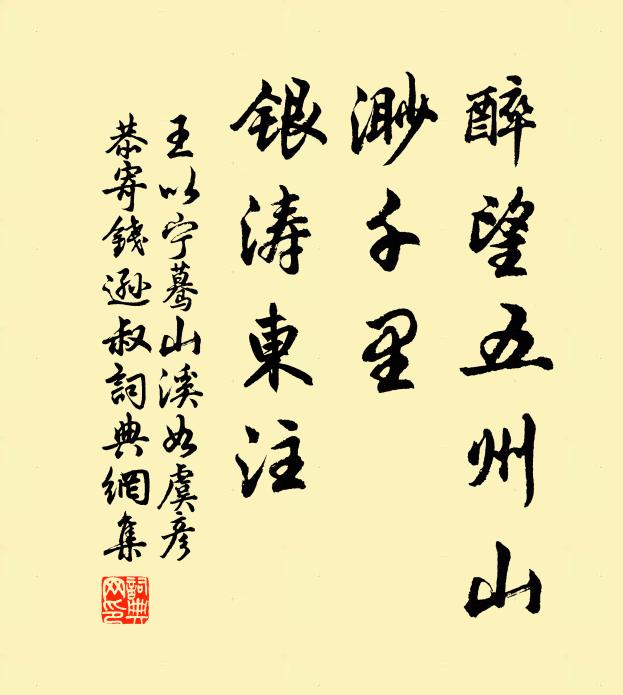 醉望五州山
渺千里
銀涛東注
王以宁驀山溪如虞彦
恭寄錢遜叔詞典網集
詞典网印